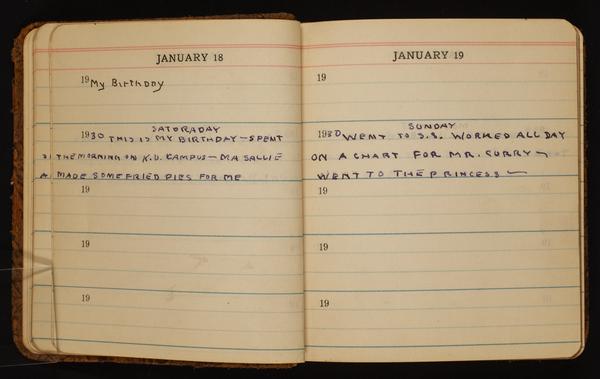 JANUARY 18
19 My Birthday
SATURADAY
1930 THIS IS MY BIRTHDAY - SPENT
THE MORNING ON K.U. CAMPUS - MA SALLIE
MADE SOME FRIED PIES FOR ME
19
19
19
JANUARY 19
19
SUNDAY
1930 WENT TO S.S. WORKED ALL DAY
ON A CHART FOR MR. CURRY -
WENT TO THE PRINCESS -
19
19
19